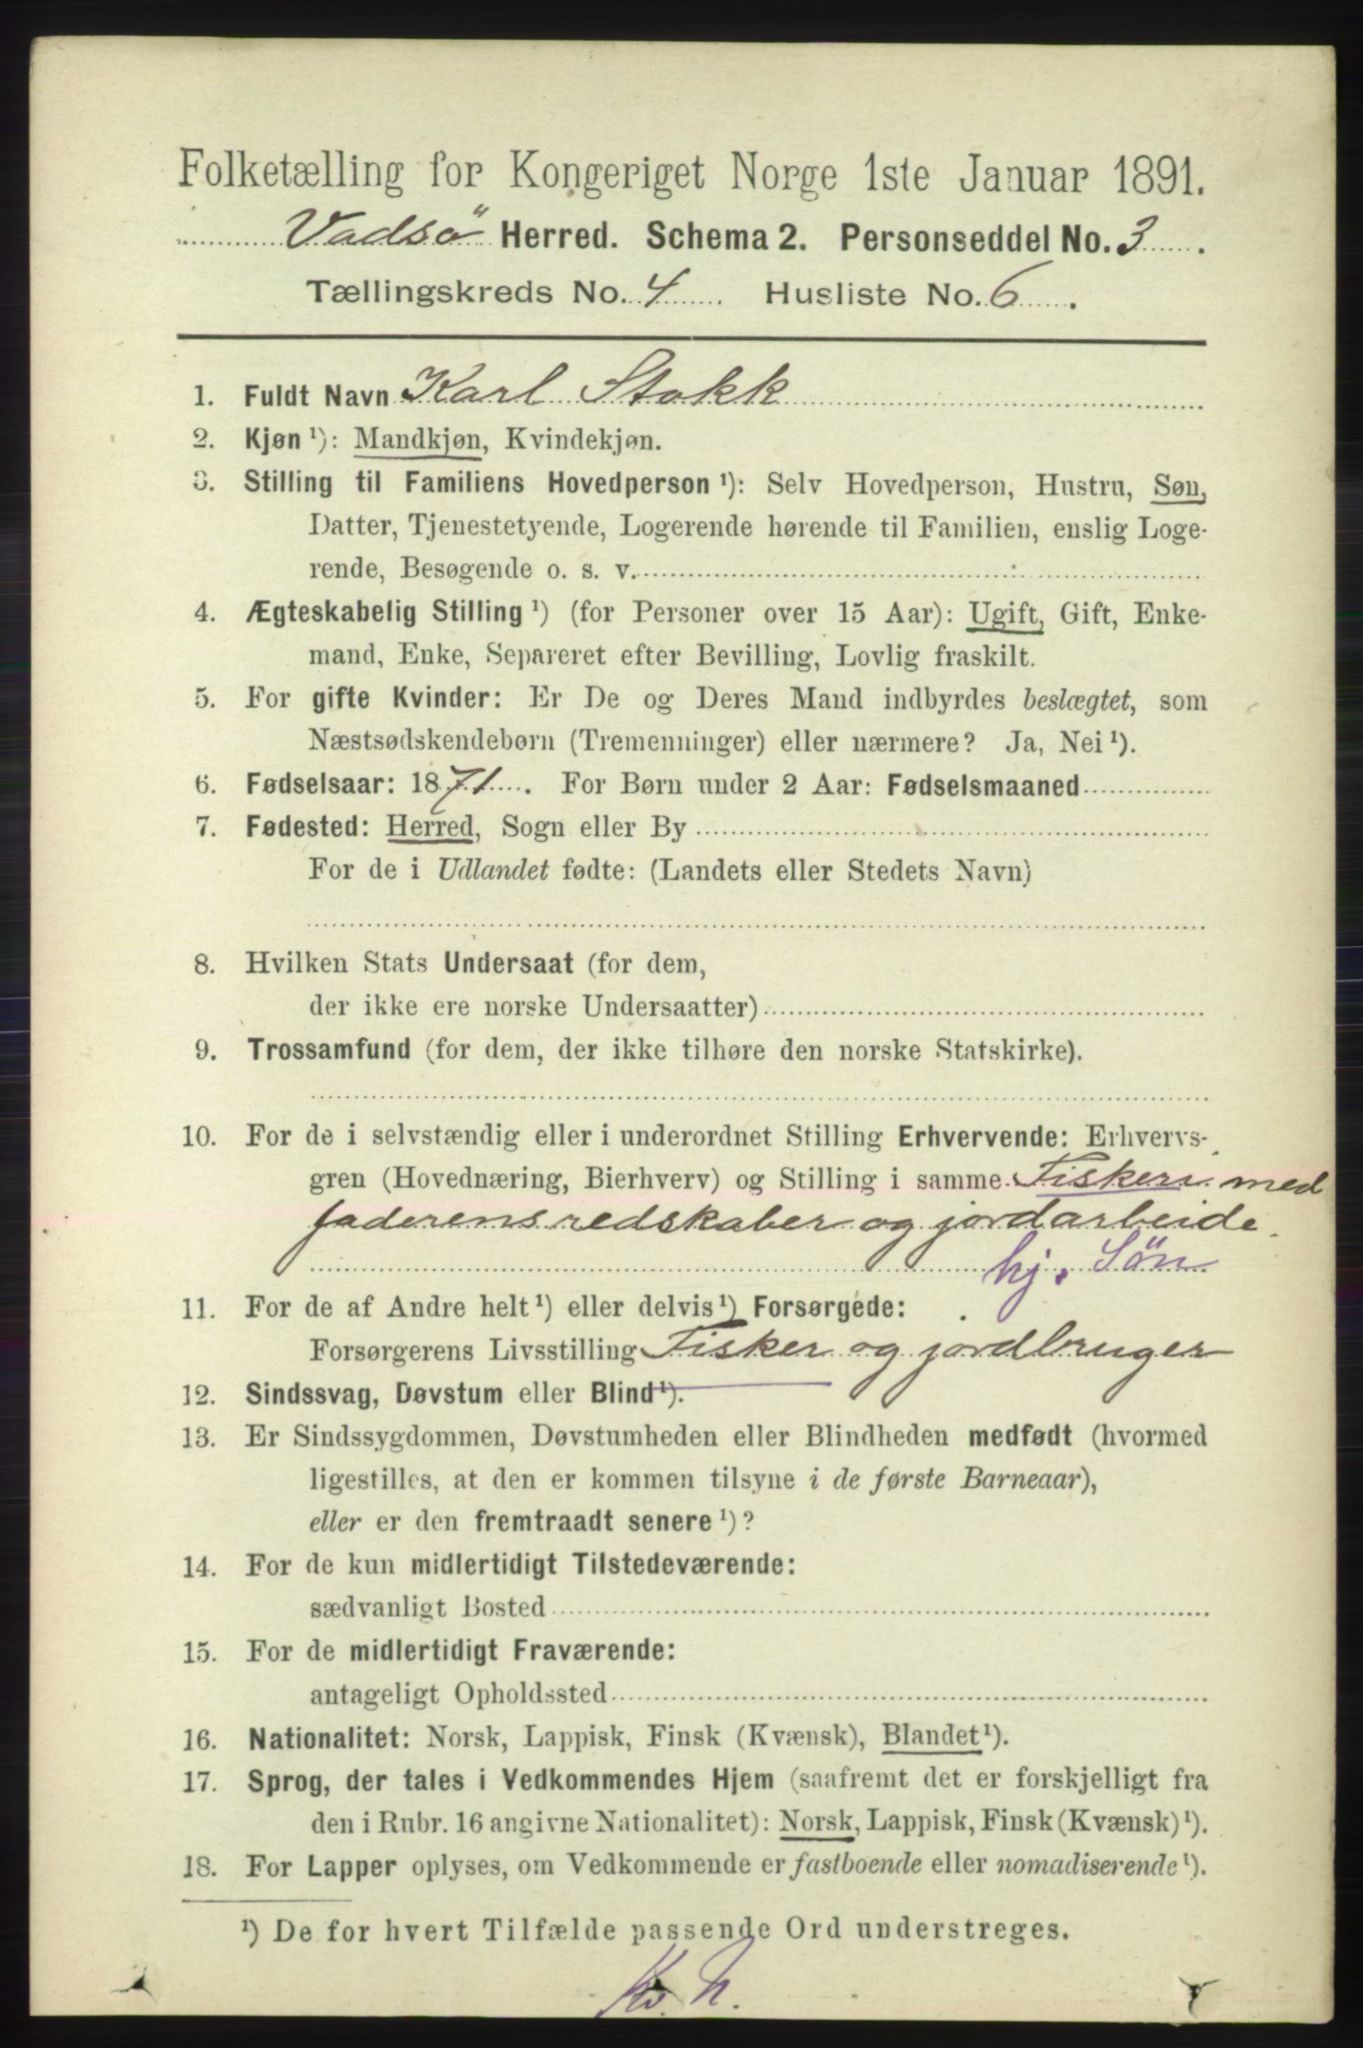 Folketælling for Kongeriget Norge 1ste Januar 1891.
Vadsö Herred. Schema 2. Personseddel No. 3.
Tællingskreds No. 4. Husliste No. 6.
1. Fuldt Navn Karl Stokk
2. Kjøn ¹): Mandkjøn, Kvindekjøn.
3. Stilling til Familiens Hovedperson ¹): Selv Hovedperson, Hustru, Søn,
Datter, Tjenestetyende, Logerende hørende til Familien, enslig Loge-
rende, Besøgende o. s. v.
4. Ægteskabelig Stilling ¹) (for Personer over 15 Aar): Ugift, Gift, Enke-
mand, Enke, Separeret efter Bevilling, Lovlig fraskilt.
5. For gifte Kvinder: Er De og Deres Mand indbyrdes beslægtet, som
Næstsødskendebørn (Tremenninger) eller nærmere? Ja, Nei ¹).
6. Fødselsaar: 1871. For Børn under 2 Aar: Fødselsmaaned
7. Fødested: Herred, Sogn eller By
For de i Udlandet fødte: (Landets eller Stedets Navn)
8. Hvilken Stats Undersaat (for dem,
der ikke ere norske Undersaatter)
9. Trossamfund (for dem, der ikke tilhøre den norske Statskirke).
10. For de i selvstændig eller i underordnet Stilling Erhvervende: Erhvervs-
gren (Hovednæring, Bierhverv) og Stilling i samme Fiskeri med
faderens redskaber og jordarbeide.
hj. Sön
11. For de af Andre helt ¹) eller delvis ¹) Forsørgede:
Forsørgerens Livsstilling Fisker og jordbruger
12. Sindssvag, Døvstum eller Blind ¹).
13. Er Sindssygdommen, Døvstumheden eller Blindheden medfødt (hvormed
ligestilles, at den er kommen tilsyne i de første Barneaar),
eller er den fremtraadt senere ¹)?
14. For de kun midlertidigt Tilstedeværende:
sædvanligt Bosted
15. For de midlertidigt Fraværende:
antageligt Opholdssted
16. Nationalitet: Norsk, Lappisk, Finsk (Kvænsk), Blandet ¹).
17. Sprog, der tales i Vedkommendes Hjem (saafremt det er forskjelligt fra
den i Rubr. 16 angivne Nationalitet): Norsk, Lappisk, Finsk (Kvænsk) ¹).
18. For Lapper oplyses, om Vedkommende er fastboende eller nomadiserende ¹).
¹) De for hvert Tilfælde passende Ord understreges.
Kv. N.